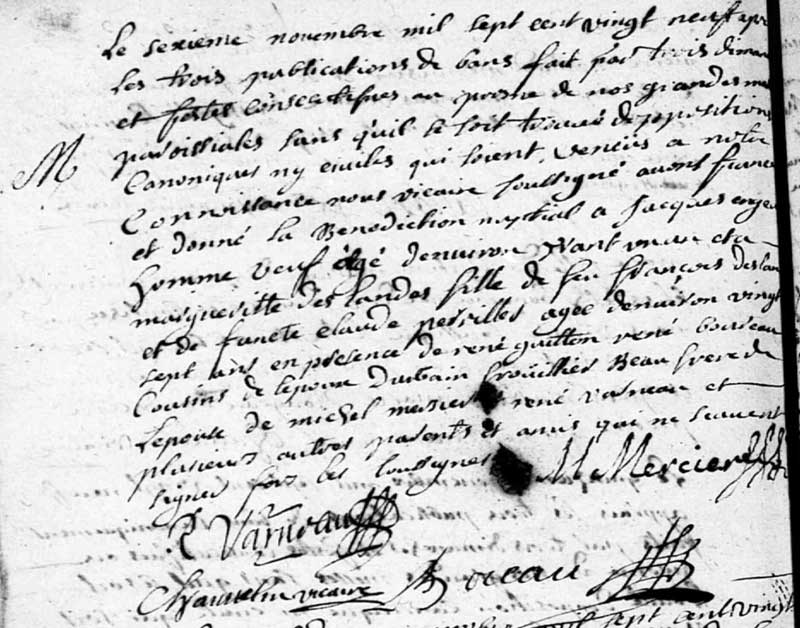 Le sexieme novembre mil sept cent vingt neuf apr
les trois publications de bans fait par trois diman
et festes consecutifves au prosne de nos grandes m
paroissiales sans quil se soit trouvé d'oppositions
Canoniques ny civiles qui soient venües a notre
Connoissance nous vicaire soussigné avons fiancé
et donné la Benediction nuptial a Jacques
homme veuf âgé denviron un an et a
margueritte deslandes fille de feu François deslan
et de functe claude agée denviron vingt
sept ans en présence de rené guitton rené boureau
Cousins de lepoux durbain Beau frere de
lepouse de michel mercier rené varneau et
plusieurs autres parents et amis qui ne scavent
signer fors les soussignés M Mercier
R Varneau
vicaire Boreau
mil sept cent vingt
M